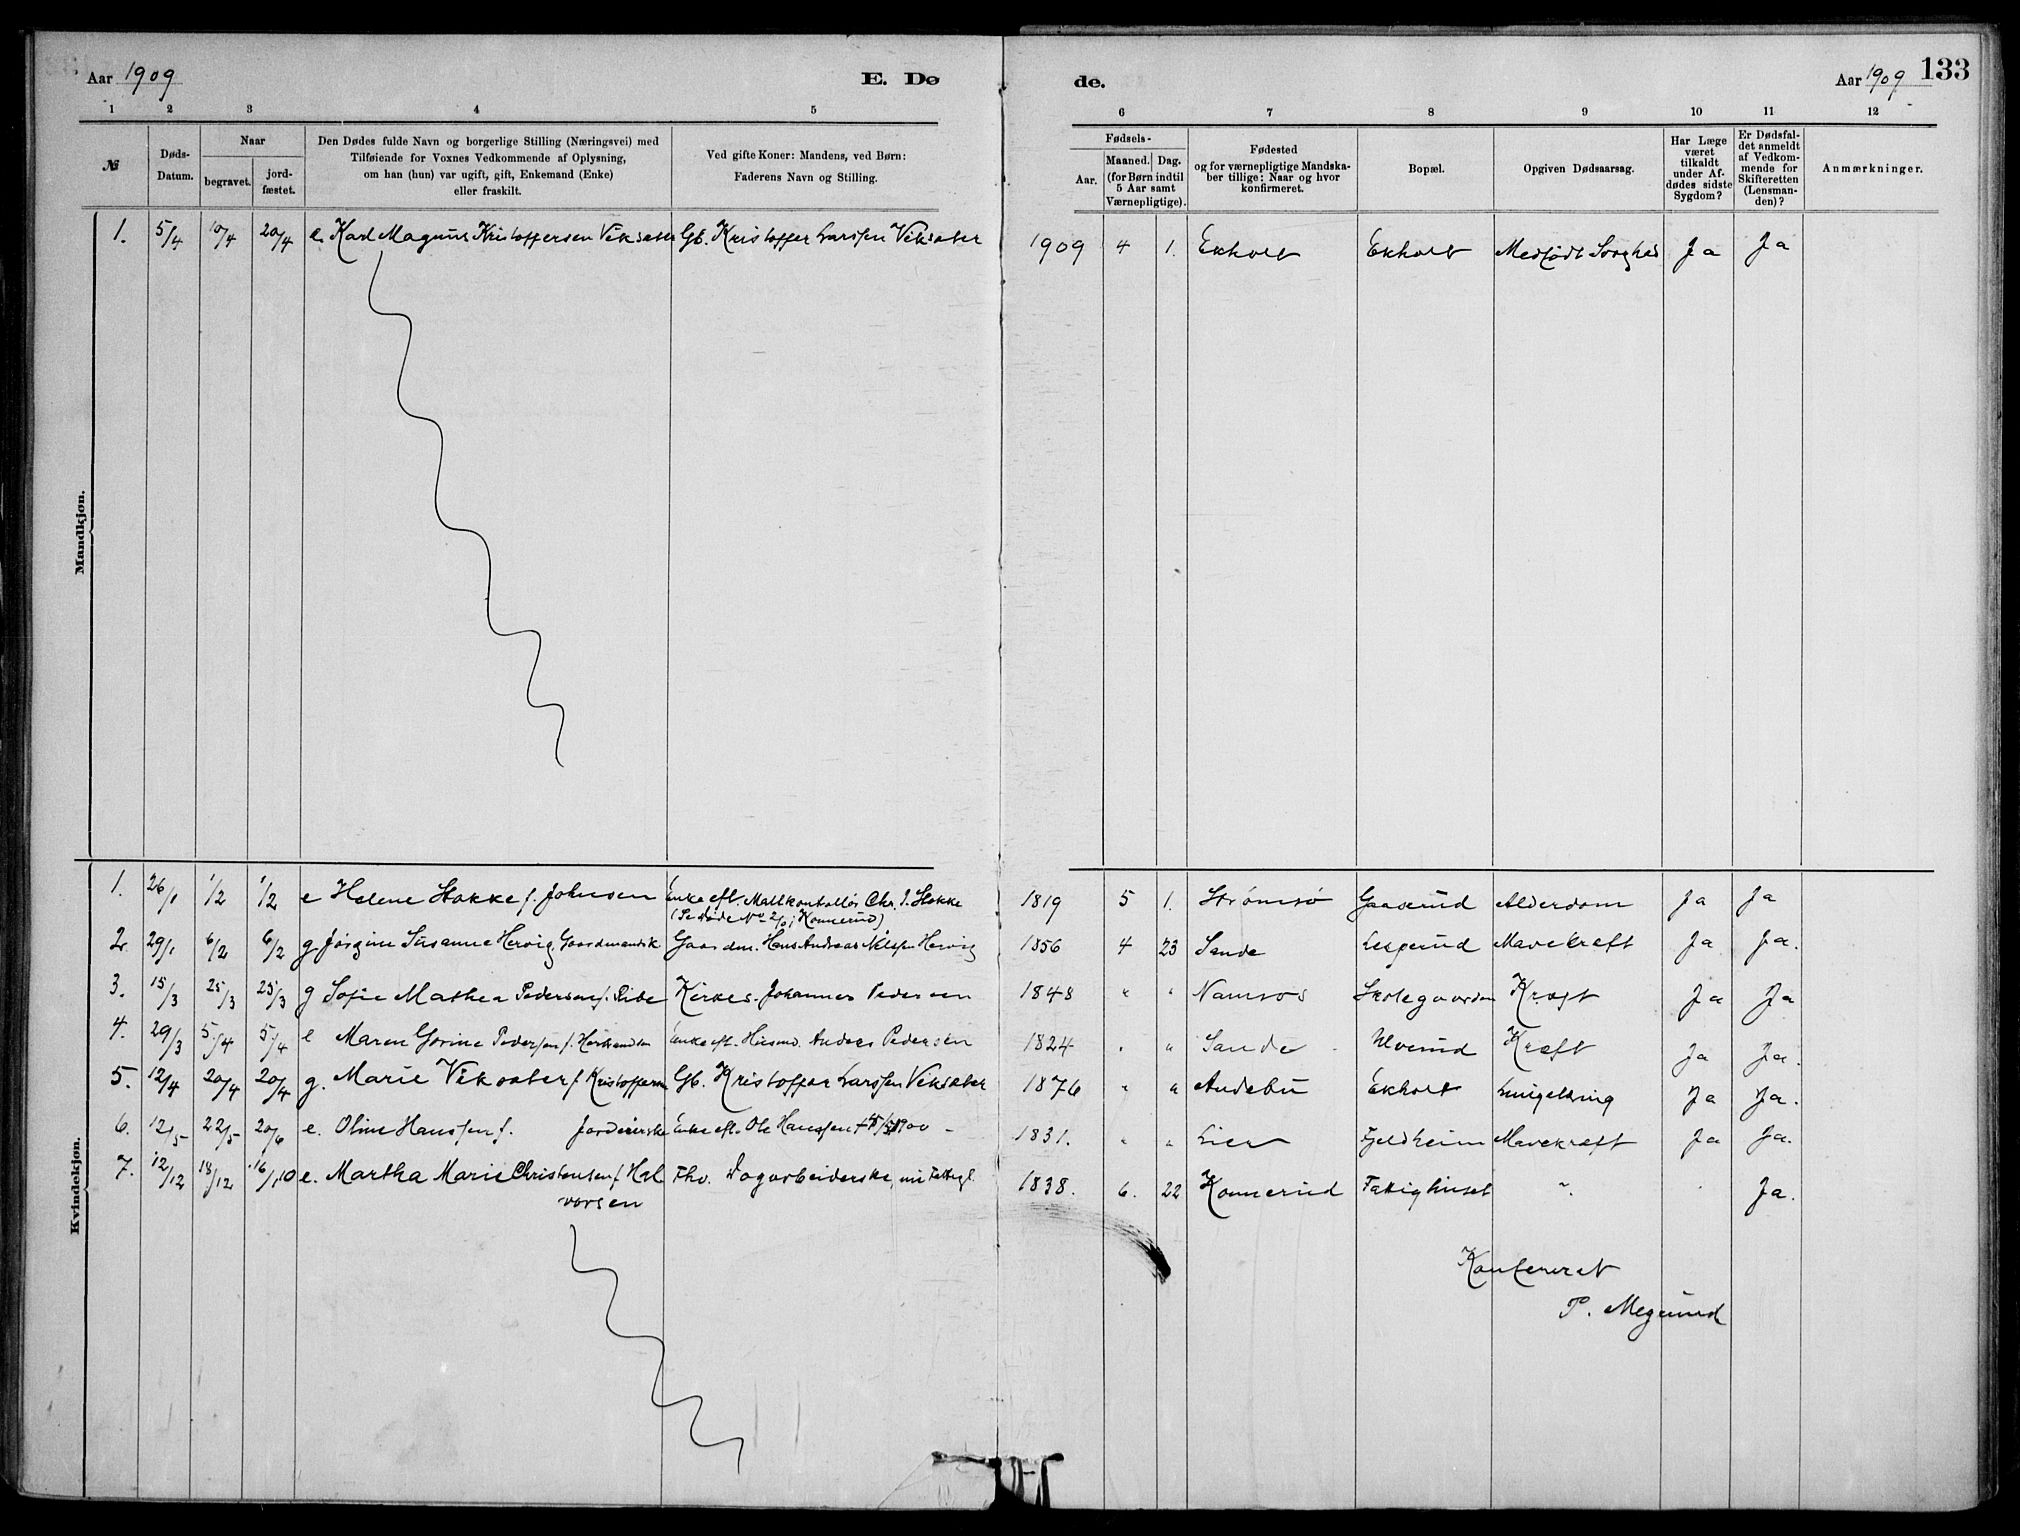 Aar 1909 E. Dø
1 2 3 4 5
№ Døds-Datum. Naar begravet. jordfæstet. Den Dødes fulde Navn og borgerlige Stilling (Næringsvei) med Tilføiende for Voxnes Vedkommende af Oplysning, om han (hun) var ugift, gift, Enkemand (Enke) eller fraskilt. Ved gifte Koner: Mandens, ved Børn: Faderens Navn og Stilling.
Mandkjøn.
1. 5/4 10/4 20/4 e. Karl Magnus Kristoffersen Viksæter Gb. Kristoffer Larssen Viksæter
Kvindekjøn.
1. 26/1 1/2 1/2 e Helene Stokke f. Johnsen Enke eft. Maltkontollør Chr. J. Stokke
(Se døde No 2/01 Konnerud)
2. 29/1 6/2 6/2 g Jørgine Susanne Hervig Gaardmandsk Gaardm. Hans Andreas Nilsen Hervig
3. 15/3 25/3 25/3 g Sofie Mathea Pedersen f. Ribe Kirkes. Johannes Pedersen
4. 29/3 5/4 5/4 e Maren Gorine Pedersen f. Enke eft. Husmd. Anders Pedersen
5. 12/4 20/4 20/4 g. Marie Viksæter f Kristoffersen Gb. Kristoffer Larssen Viksæter
6. 12/5 22/5 20/6 e. Oline Hanssen f. Jordeierske Enke eft. Ole Hanssen 1900 -
7. 12/12 18/12 16/1 10 e. Martha Marie Christensen f Hal Fhv. Dagarbeiderske, nu Fattigl.
vorsen
de. Aar 1909 133
6 7 8 9 10 11 12
Fødsels- Aar. Maaned. Dag. (for Børn indtil 5 Aar samt Værnepligtige). Fødested og for værnepligtige Mandskaber tillige: Naar og hvor konfirmeret. Bopæl. Opgiven Dødsaarsag. Har Læge været tilkaldt under Afdødes sidste Sygdom? Er Dødsfaldet anmeldt af Vedkommende for Skifteretten (Lensmanden)? Anmærkninger.
1909 4 1. Ekholt Ekholt Medfødt Svaghed Ja Ja
1819 5 1. Strømsø Gaaserud Alderdom Ja Ja
1856 4 23 Sande Lesgerud Mavekræft Ja Ja.
1848 " " Namsos Skolegaarden Kræft Ja Ja
1824 " " Sande Ulverud Kræft Ja Ja.
1876 " " Andebu Ekholt Ja Ja.
1831. " " Lier Fjeldheim Mavekræft Ja Ja.
1838. 6. 22 Konnerud Fattighuset " Ja.
Konfereret
P. Megrund